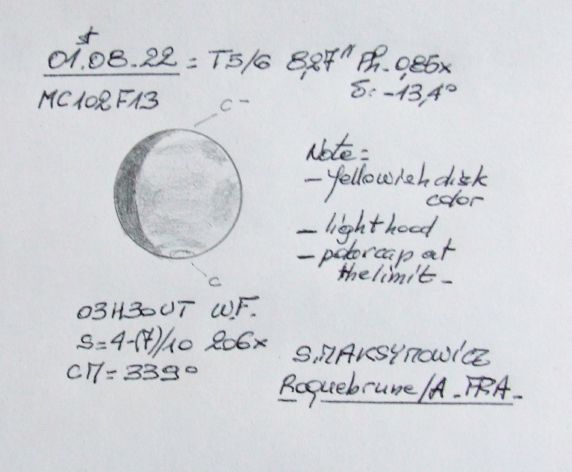 01.08.22 = T5/6 8,27" Ph. 0,85x
MC102F13
δ: -13,4°
C-
Note =
- Yellowish disk
color
- light hood
- polar cap at
the limit -
C
03H30UT W.F.
S=4-(7)/10 206x
CM=339°
S.MAKSYMOWICZ
Roquebrune/A_FRA_